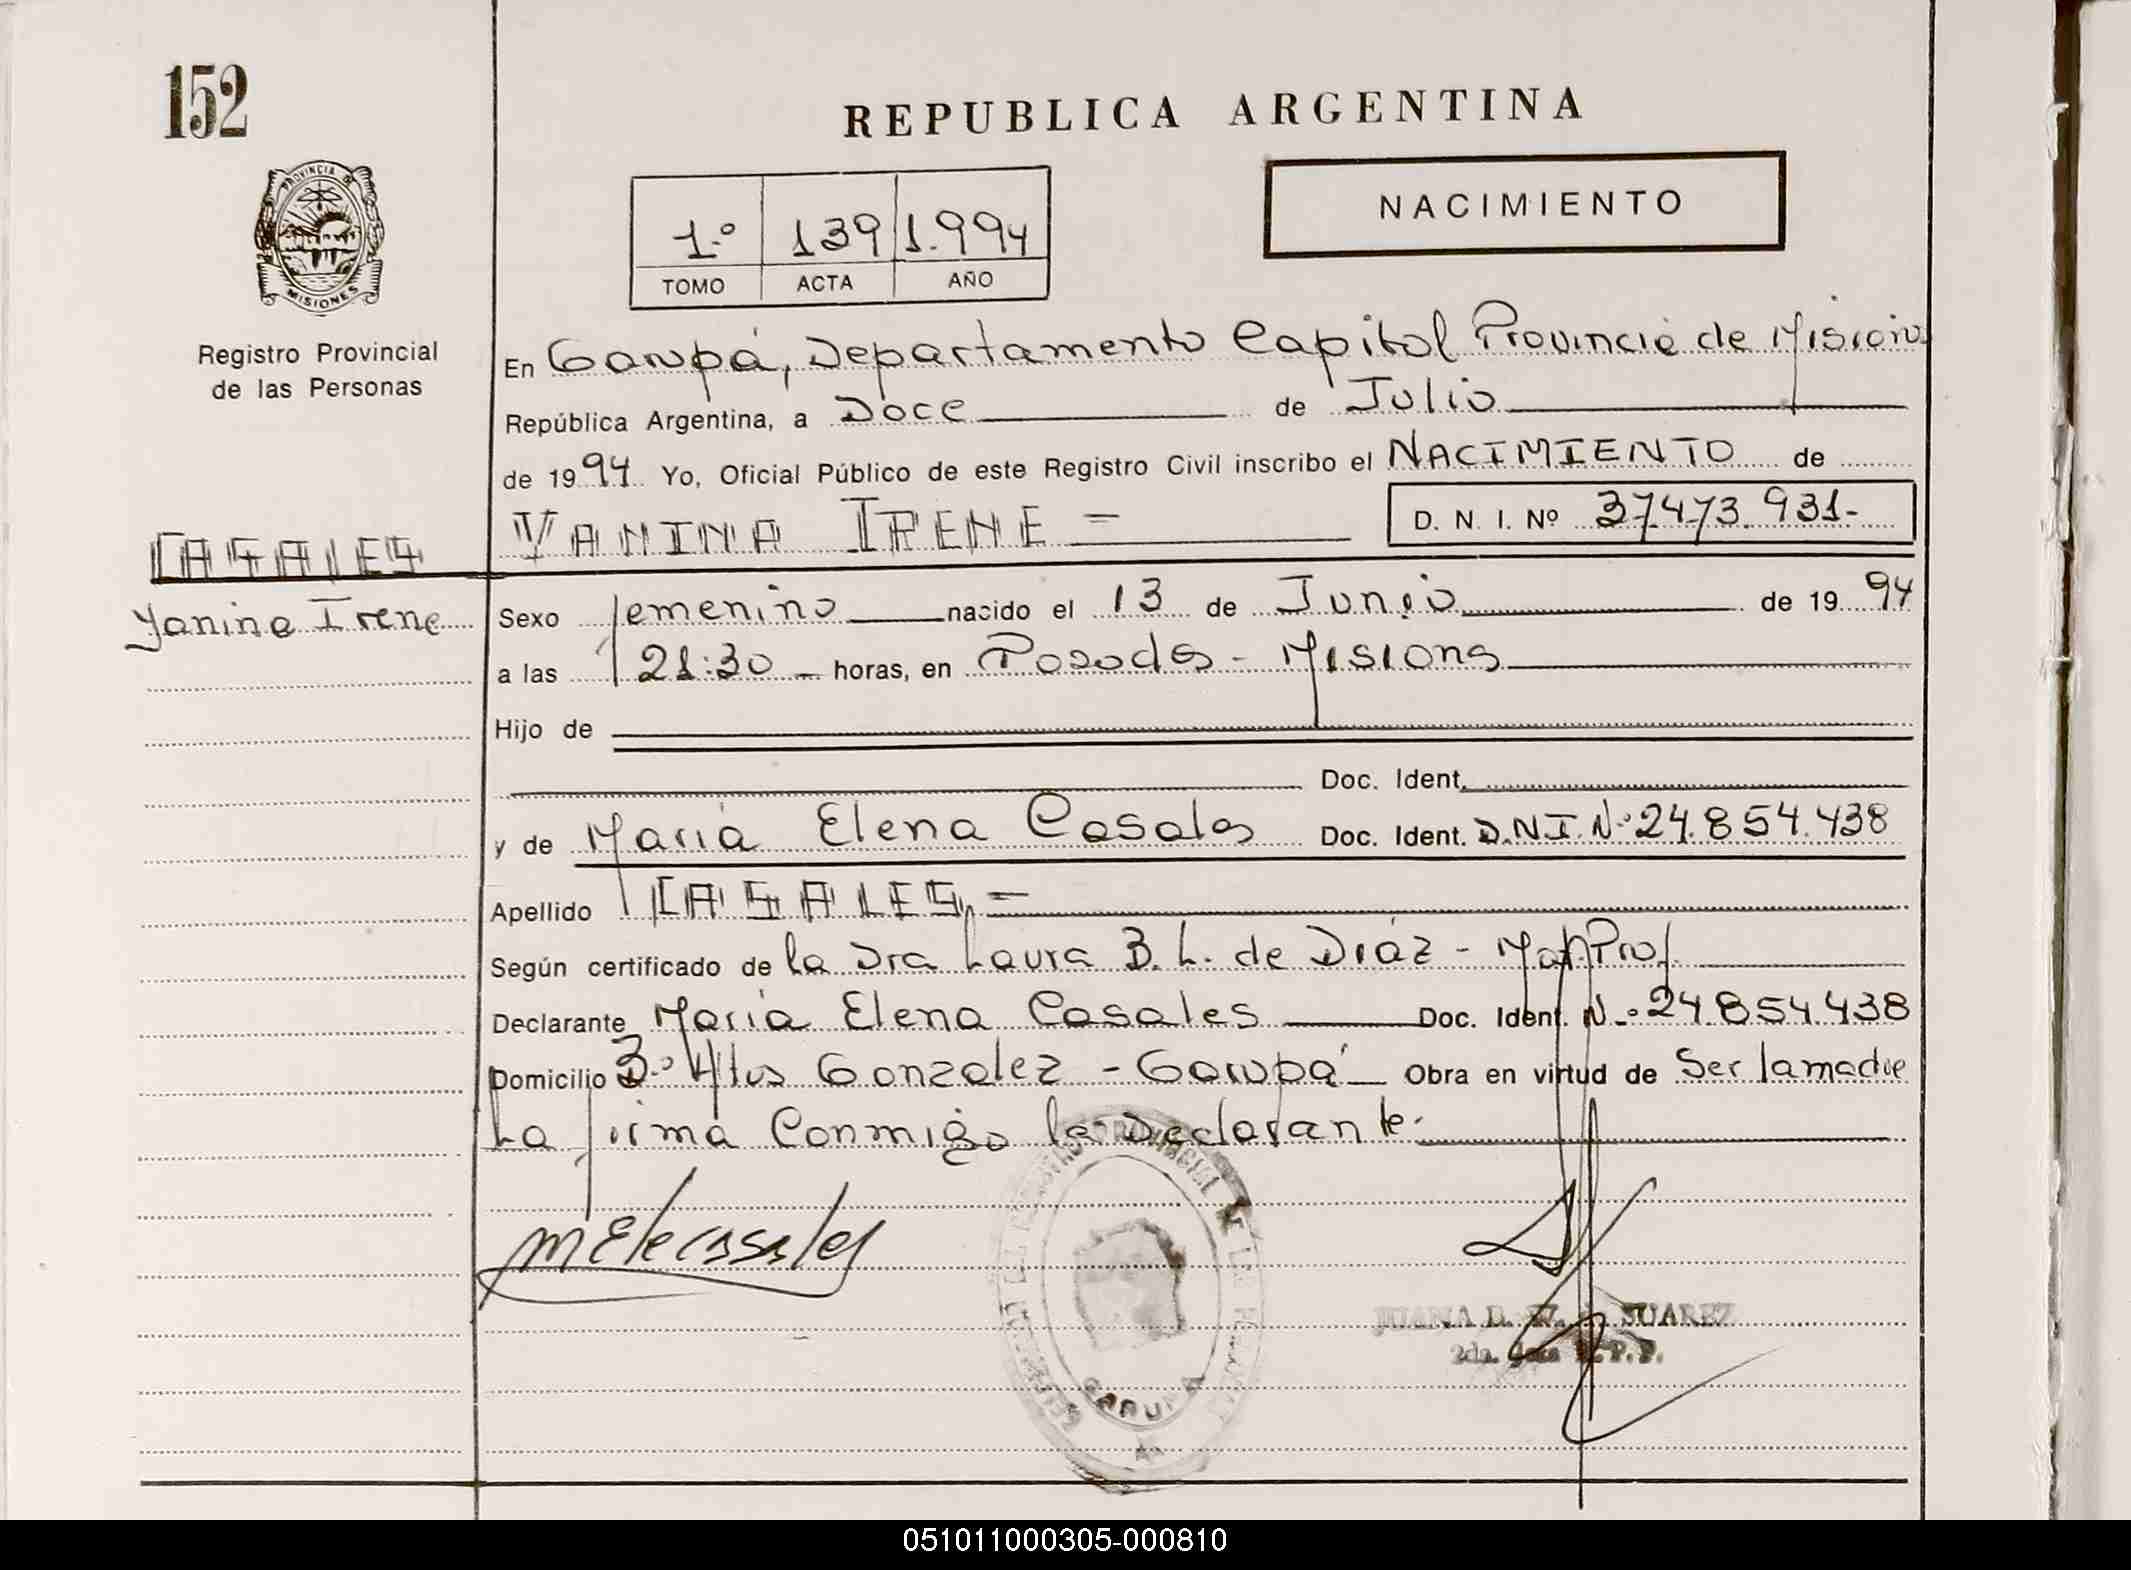 152
REPUBLICA ARGENTINA
PROVINCIA DE
MISIONES
1.º 139 1.994
TOMO ACTA AÑO
NACIMIENTO
Registro Provincial
de las Personas
En Garupá, Departamento Capital Provincia de Misiones
República Argentina, a Doce de Julio
de 1994 Yo, Oficial Público de este Registro Civil inscribo el NACIMIENTO de
CASALES
YANINA IRENE = D. N. I. Nº 37473.931-
Yanina Irene
Sexo femenino nacido el 13 de Junio de 1994
a las 21:30 horas, en Posadas - Misions
Hijo de
Doc. Ident.
y de Maria Elena Casales Doc. Ident. D.N.I.Nº 24.854.438
Apellido CASALES =
Según certificado de la Dra Laura B. L. de Diáz - Mat. Prof.
Declarante Maria Elena Casales Doc. Ident. Nº 24.854.438
Domicilio Bº Altos Gonzalez - Garupá Obra en virtud de Ser la madre
La firma Conmigo la Declarante.
M Ele Casales
GARUPA
JUANA D. SUAREZ
2da. R.P.P.
051011000305-000810